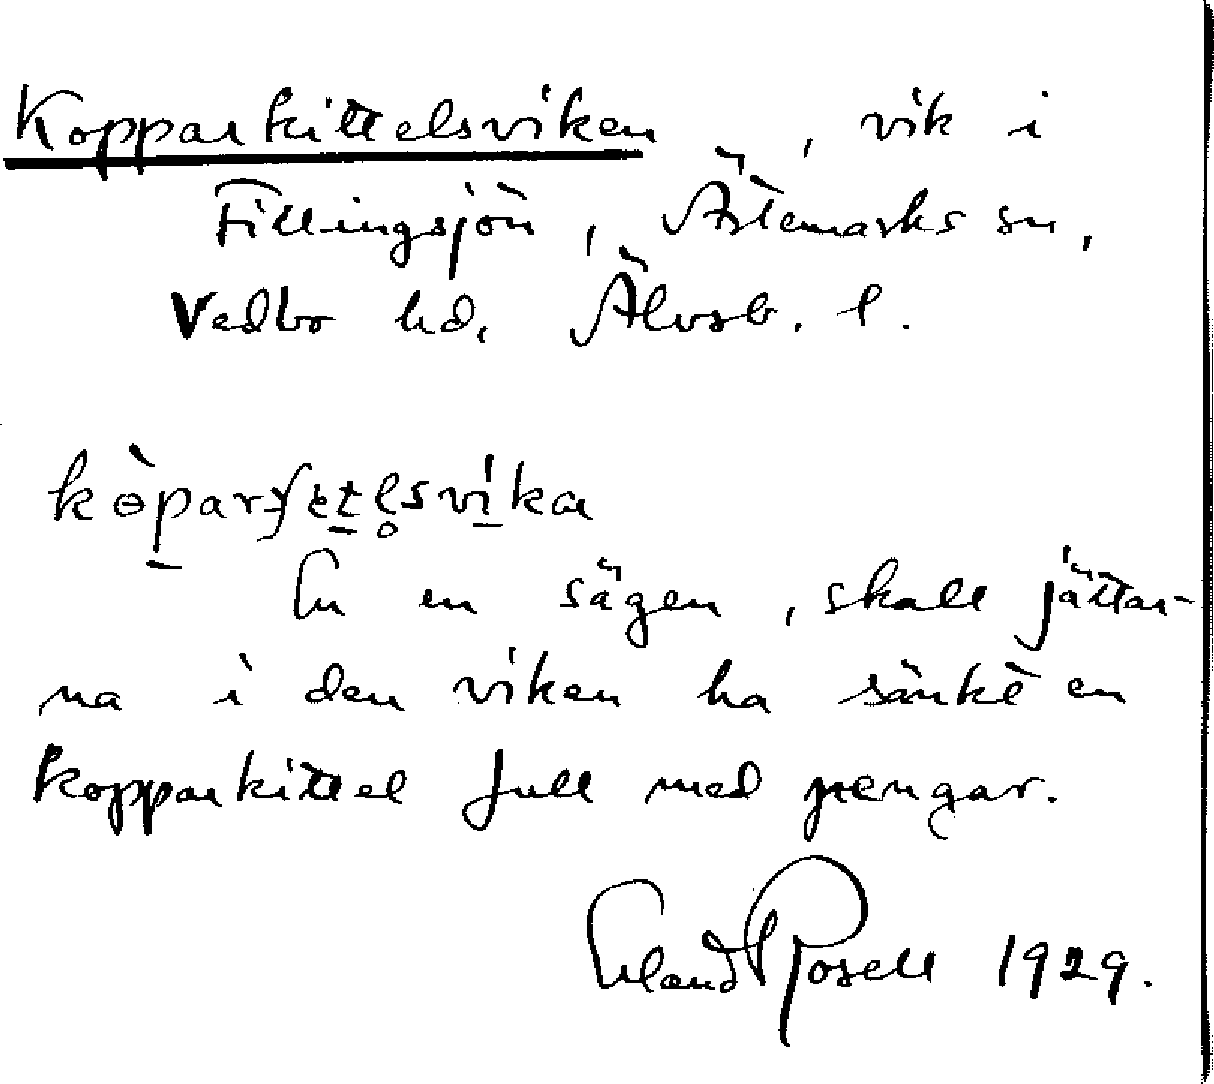 Kopparkittelsviken, vik i
Fillingsjön, Ärtemarks sn,
Vedbo hd, Älvsb. l.
En sägen, skall jättar-
na i den viken ha sänkt en
kopparkittel full med pengar.
Erland Rosell 1929.